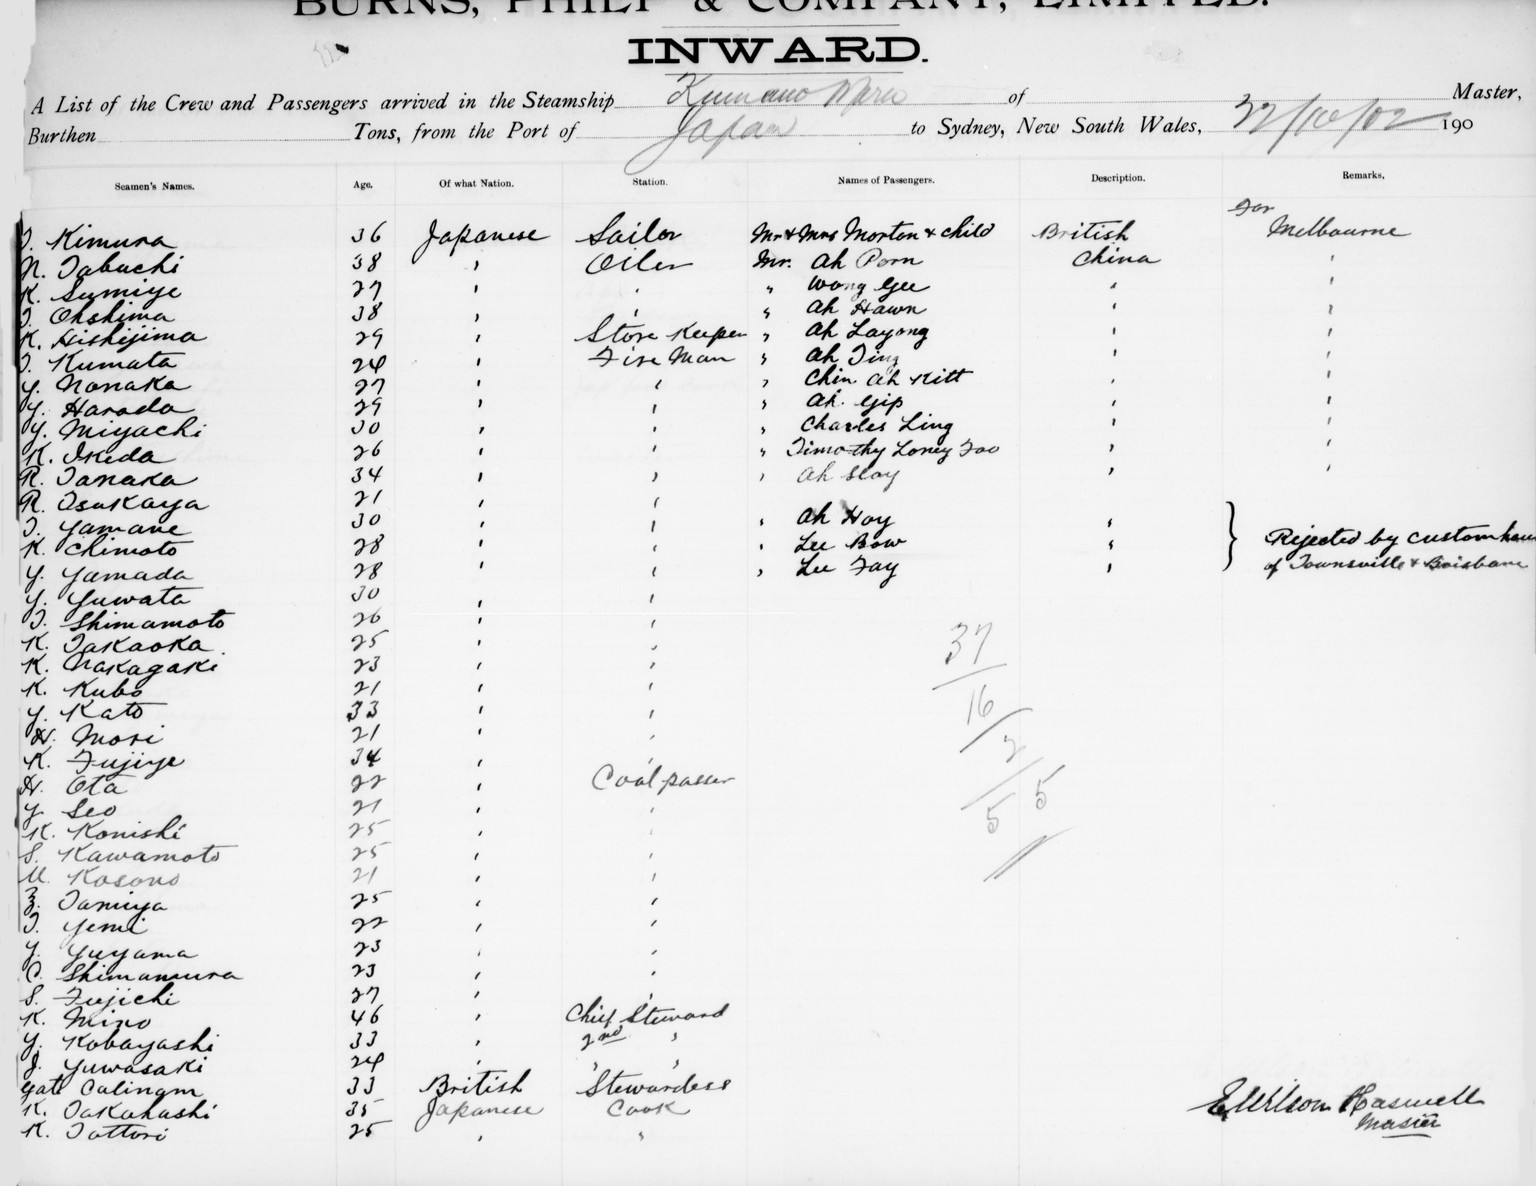 BURNS, PHILP & COMPANY, LIMITED.
INWARD.
A List of the Crew and Passengers arrived in the Steamship Kumano Maru of Master,
Burthen Tons, from the Port of Japan to Sydney, New South Wales, 22/10/02 190
Seamen's Names. Age. Of what Nation. Station. Names of Passengers. Description. Remarks.
For
T. Kimura 36 Japanese Sailor Mr & Mrs Morton & child British Melbourne
N. Tabuchi 38 " Oiler Mr. Ah Porn China "
K. Sumiye 27 " " " Wong Gee " "
T. Ohshima 38 " " " Ah Hawn " "
K. Hishijima 29 " Store Keeper " Ah Layong " "
T. Kumata 24 " Fire Man " Ah Ting " "
Y. Nonaka 27 " " " Chin Ah Kitt " "
Y. Harada 29 " " " Ah Gip " "
Y. Miyachi 30 " " " Charles Ling " "
K. Ikeda 26 " " " Timothy Loney Foo " "
R. Tanaka 34 " " " Ah Slay " "
R. Tsukaya 21 " "
T. Yamane 30 " " " Ah Hoy "
K. Chimoto 28 " " " Lee Bow " Rejected by Custom
Y. Yamada 28 " " " Lee Fay " of Townsville & Brisbane
Y. Yuwata 30 " "
T. Shimamoto 26 " "
K. Takaoka 25 " "
K. Nakagaki 23 " "
K. Kubo 21 " "
Y. Kato 33 " "
H. Mori 21 " "
K. Fujiye 34 " "
H. Ota 22 " Coalpasser
Y. Seo 21 " "
K. Konishi 25 " "
S. Kawamoto 25 " "
U. Kosono 21 " "
Z. Tamiya 25 " "
T. Yemi 22 " "
Y. Yuyama 23 " "
C. Shimamura 23 " "
S. Fujichi 27 " "
K. Mino 46 " Chief Steward
Y. Kobayashi 33 " 2nd "
J. Yuwasaki 24 " " "
Gate Calingam 33 British Stewardess
K. Takahashi 35 Japanese Cook
K. Tottori 25 " "
37
16
2
55
E Wilson Haswell
Master